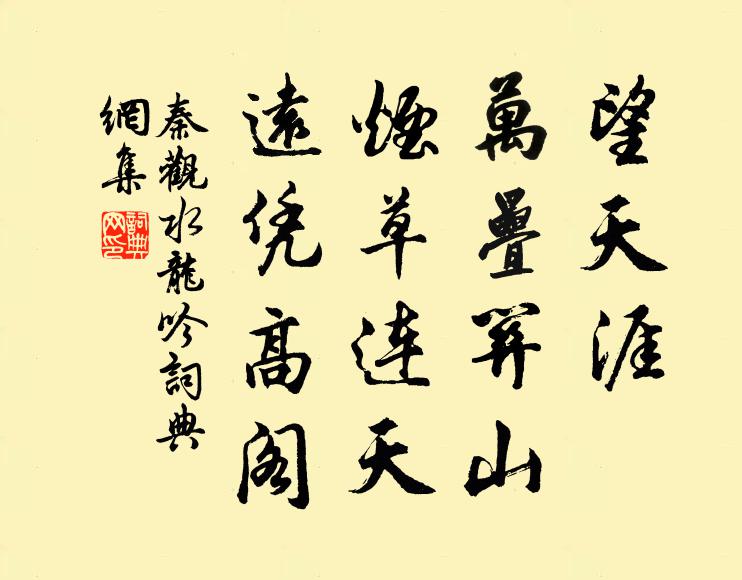 望天涯
萬疊關山
煙草連天
遠凭高阁
秦觀水龍吟詞典
網集
詞典
网印